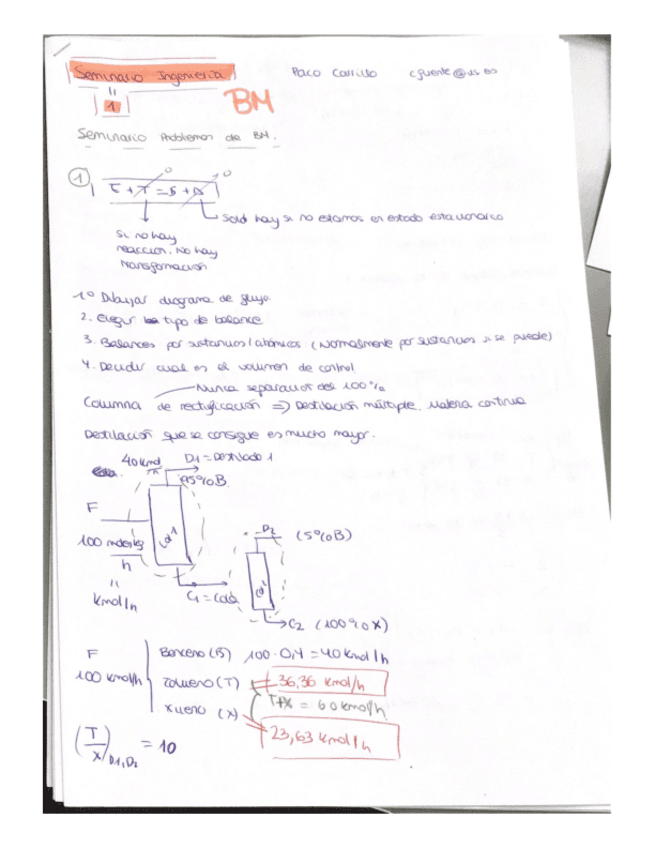 Seminario Ingeniería Paco Carrillo
"
1 BM
Seminario Problemas de BM.
1
E + T = S + A
0 0
Solo hay si no estamos en estado estacionario
Si no hay
reacción. No hay
transformación
1º Dibujar diagrama de flujo.
2. Elegir tipo de balance
3. Balances por sustancias / atómicos (Normalmente por sustancias si se puede)
4. Decidir cual es el volumen de control
Nunca separamos del 100%
Columna de rectificación => Destilación múltiple. Manera continua
Destilación que se consigue es mucho mayor.
40 kmol D1 = Destilado 1
95%B
F
D2 (5%B)
100 moles kg
h
"
kmol/h
col 1
C1 = Cola
C2 (100%X)
F
100 kmol/h
Benceno (B) 100·0,4 = 40 kmol/h
Tolueno (T) 36,36 kmol/h
T+X = 60 kmol/h
Xileno (X) 23,63 kmol/h
(T/X) D1,D2 = 10